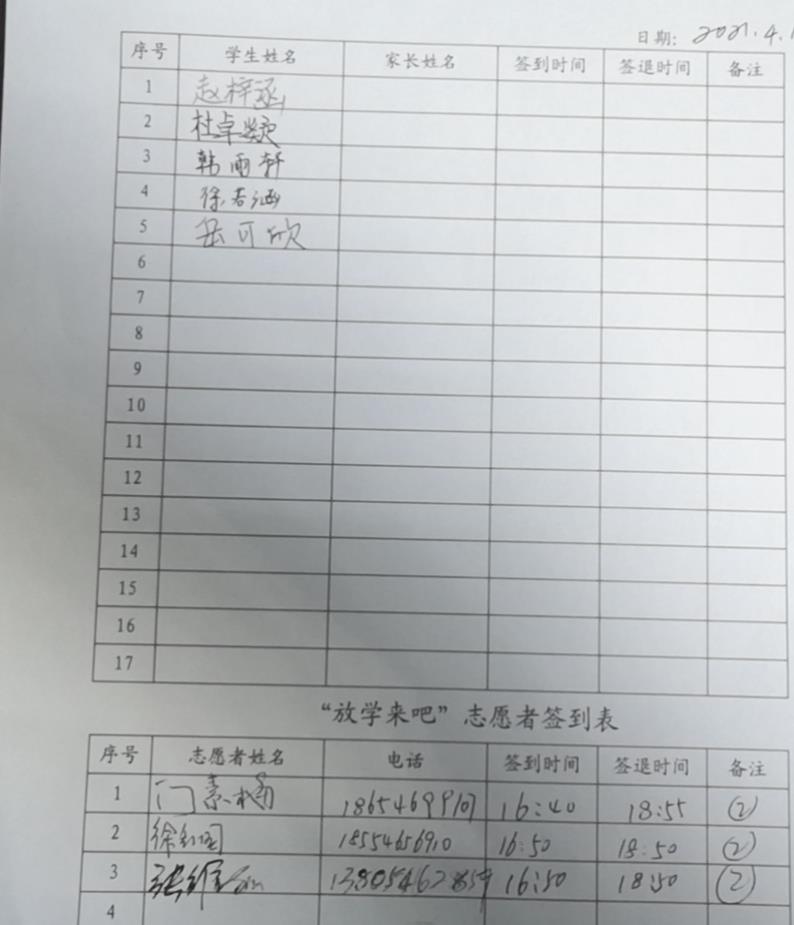 日期: 2021.4.1
序号 学生姓名 家长姓名 签到时间 签退时间 备注
1 赵梓涵
2 杜卓
3 韩雨轩
4 徐若涵
5 岳可欣
6
7
8
9
10
11
12
13
14
15
16
17
“放学来吧”志愿者签到表
序号 志愿者姓名 电话 签到时间 签退时间 备注
1 门 16:40 18:55 ②
2 徐 16:50 18:50 ②
3 张 16:50 18:50 ②
4